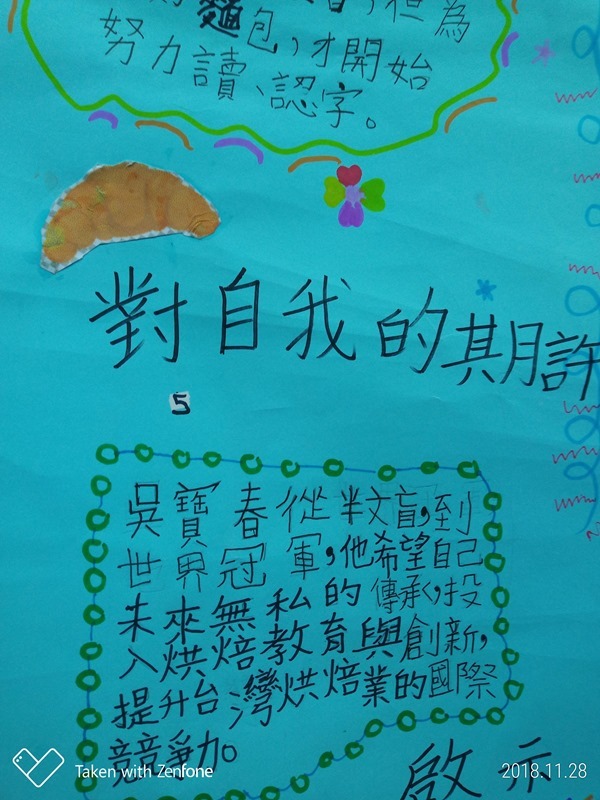 麵包,才開始
努力讀、認字。
對自我的期許
5
吳寶春從半文盲,到
世界冠軍,他希望自己
未來無私的傳承,投
入烘焙教育與創新,
提升台灣烘焙業的國際
競爭力。
啟示
Taken with Zenfone
2018.11.28